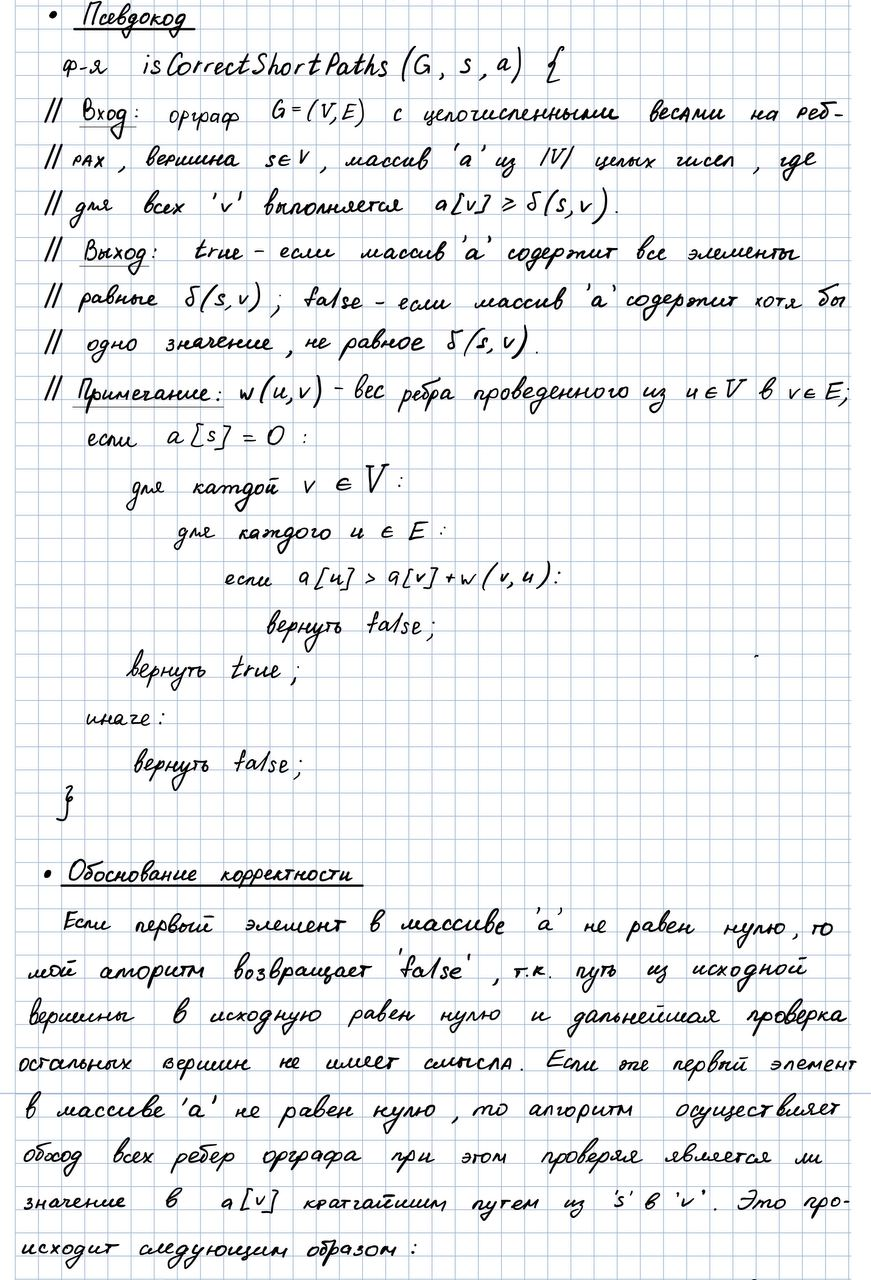 • Псевдокод
ф-я isCorrectShortPaths (G, s, a) {
// Вход: орграф G=(V,E) с целочисленными весами на реб-
// рах, вершина s∈V, массив 'a' из |V| целых чисел, где
// для всех 'v' выполняется a[v] ≥ δ(s,v).
// Выход: true - если массив 'a' содержит все элементы
// равные δ(s,v); false - если массив 'a' содержит хотя бы
// одно значение, не равное δ(s,v).
// Примечание: w(u,v) - вес ребра проведенного из u∈V в v∈E;
если a[s] = 0 :
для каждой v ∈ V :
для каждого u ∈ E :
если a[u] > a[v]+w(v,u):
вернуть false;
вернуть true;
иначе :
вернуть false;
}
• Обоснование корректности
Если первый элемент в массиве 'a' не равен нулю, то
мой алгоритм возвращает 'false', т.к. путь из исходной
вершины в исходную равен нулю и дальнейшая проверка
остальных вершин не имеет смысла. Если же первый элемент
в массиве 'a' не равен нулю, то алгоритм осуществляет
обход всех ребер орграфа при этом проверяя является ли
значение в a[v] кратчайшим путем из 's' в 'v'. Это про-
исходит следующим образом :